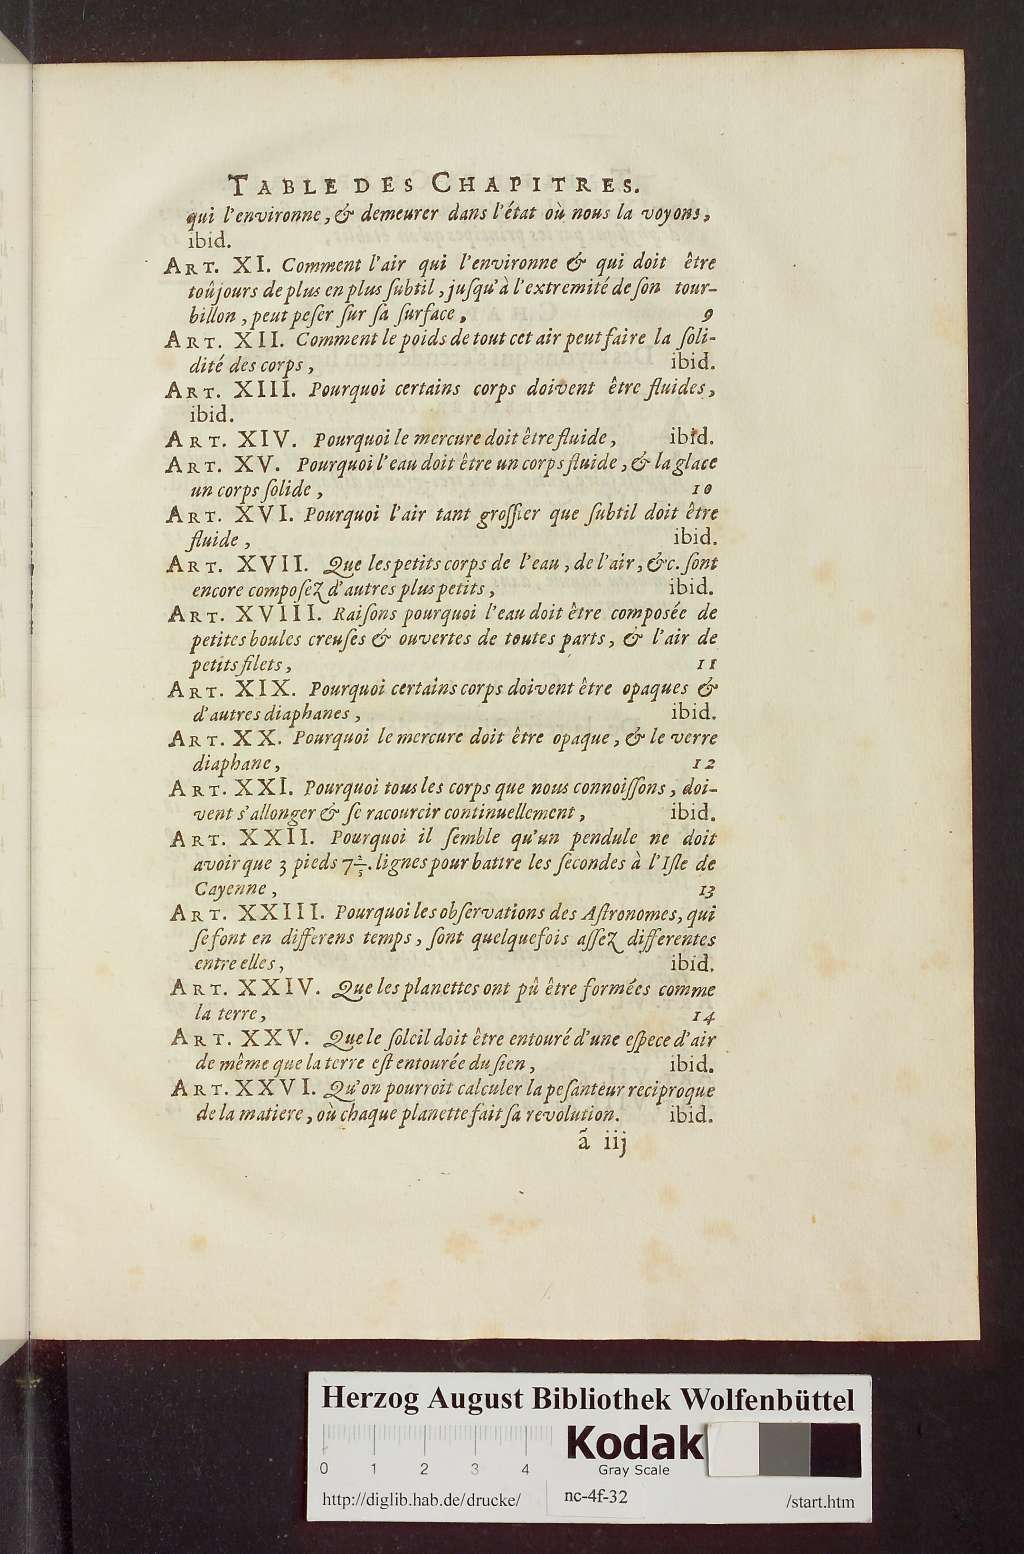 TABLE DES CHAPITRES.
qui l'environne, & demeurer dans l'état où nous la voyons,
ibid.
ART. XI. Comment l'air qui l'environne & qui doit être
toûjours de plus en plus ſubtil, juſqu'à l'extremité de ſon tour-
billon, peut peſer ſur ſa ſurface, 9
ART. XII. Comment le poids de tout cet air peut faire la ſoli-
dité des corps, ibid.
ART. XIII. Pourquoi certains corps doivent être fluides,
ibid.
ART. XIV. Pourquoi le mercure doit être fluide, ibid.
ART. XV. Pourquoi l'eau doit être un corps fluide, & la glace
un corps ſolide, 10
ART. XVI. Pourquoi l'air tant groſſier que ſubtil doit être
fluide, ibid.
ART. XVII. Que les petits corps de l'eau, de l'air, &c. ſont
encore compoſez d'autres plus petits, ibid.
ART. XVIII. Raiſons pourquoi l'eau doit être composée de
petites boules creuſes & ouvertes de toutes parts, & l'air de
petits filets, 11
ART. XIX. Pourquoi certains corps doivent être opaques &
d'autres diaphanes, ibid.
ART. XX. Pourquoi le mercure doit être opaque, & le verre
diaphane, 12
ART. XXI. Pourquoi tous les corps que nous connoiſſons, doi-
vent s'allonger & ſe racourcir continuellement, ibid.
ART. XXII. Pourquoi il ſemble qu'un pendule ne doit
avoir que 3 pieds 7 2/5. lignes pour battre les ſecondes à l'Iſle de
Cayenne, 13
ART. XXIII. Pourquoi les obſervations des Aſtronomes, qui
ſe font en differens temps, ſont quelquefois aſſez differentes
entre elles, ibid.
ART. XXIV. Que les planettes ont pû être formées comme
la terre, 14
ART. XXV. Que le ſoleil doit être entouré d'une eſpece d'air
de même que la terre eſt entourée du ſien, ibid.
ART. XXVI. Qu'on pourroit calculer la peſanteur reciproque
de la matiere, où chaque planette fait ſa revolution. ibid.
ã iij
Herzog August Bibliothek Wolfenbüttel
Kodak
Gray Scale
0 1 2 3 4
http://diglib.hab.de/drucke/ nc-4f-32 /start.htm